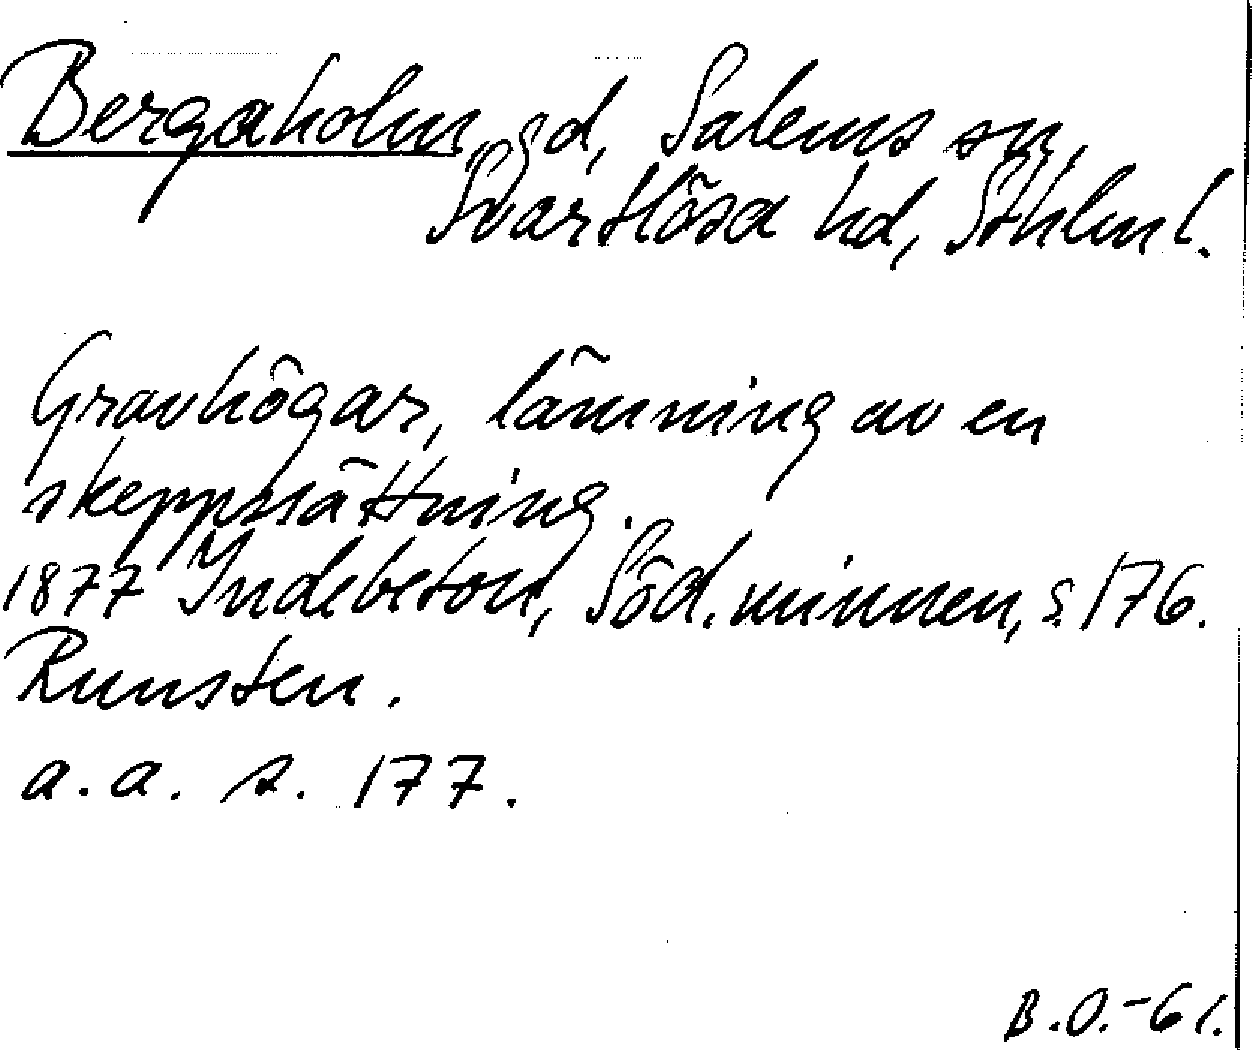 Bergaholm, gd, Salems sn,
Svartlösa hd, Sthlm l.
Gravhögar, lämning av en
skeppssättning.
1877 Indebetou, Söd. minnen, s. 176.
Runsten.
a. a. s. 177.
B.O.-61.